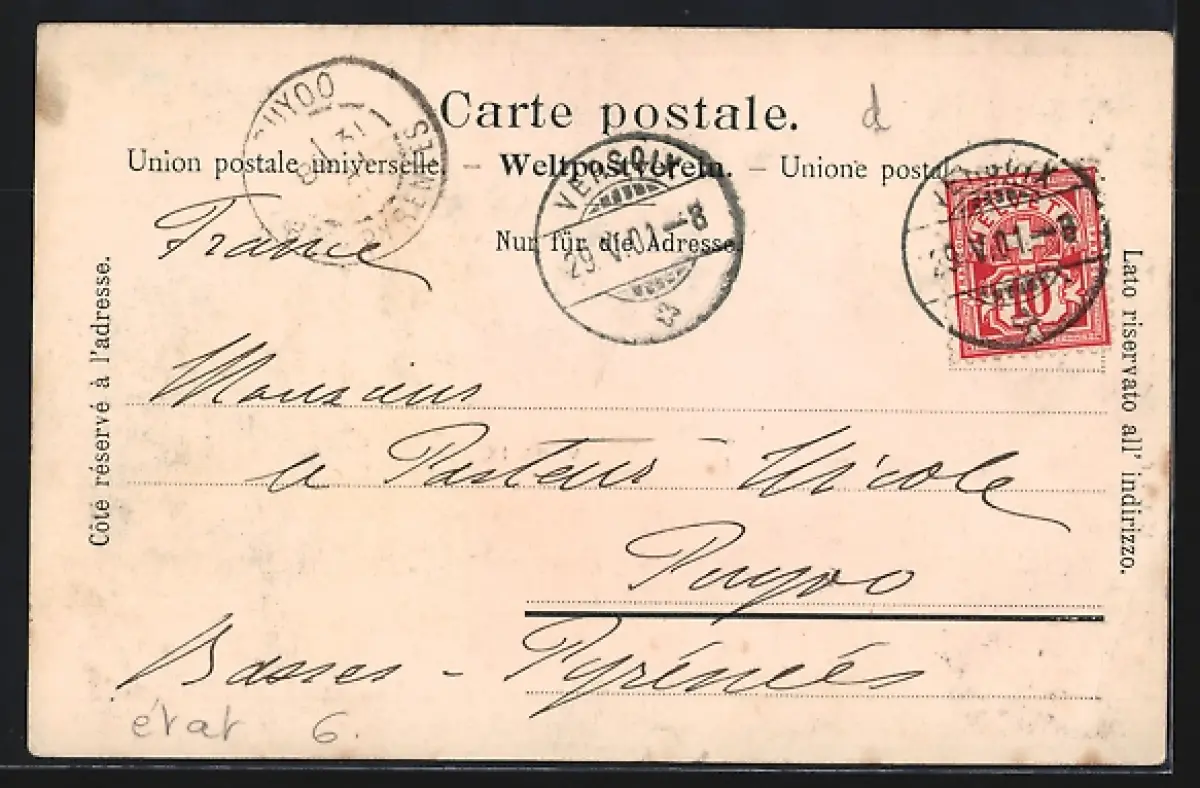 Carte postale.
d
Union postale universelle. — Weltpostverein. — Unione postal
Nur für die Adresse.
PUYOO
31
VERSOIX
29.V.01.-8
VERSOIX
29.V.01.-8
HELVETIA
10
France
Côté réservé à l'adresse.
Lato riservato all' indirizzo.
Monsieur
le Pasteur Nicole
Puyoo
Basses - Pyrénées
état 6.